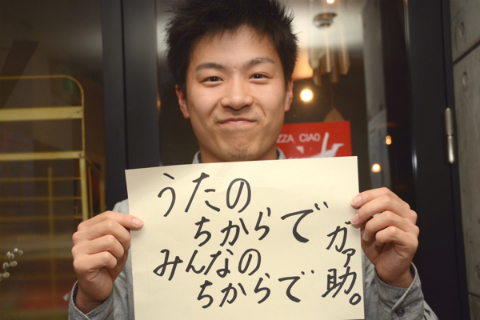 ZZA CIAO
うたの
ちからで
みんなの
ちからで
ガァ助。